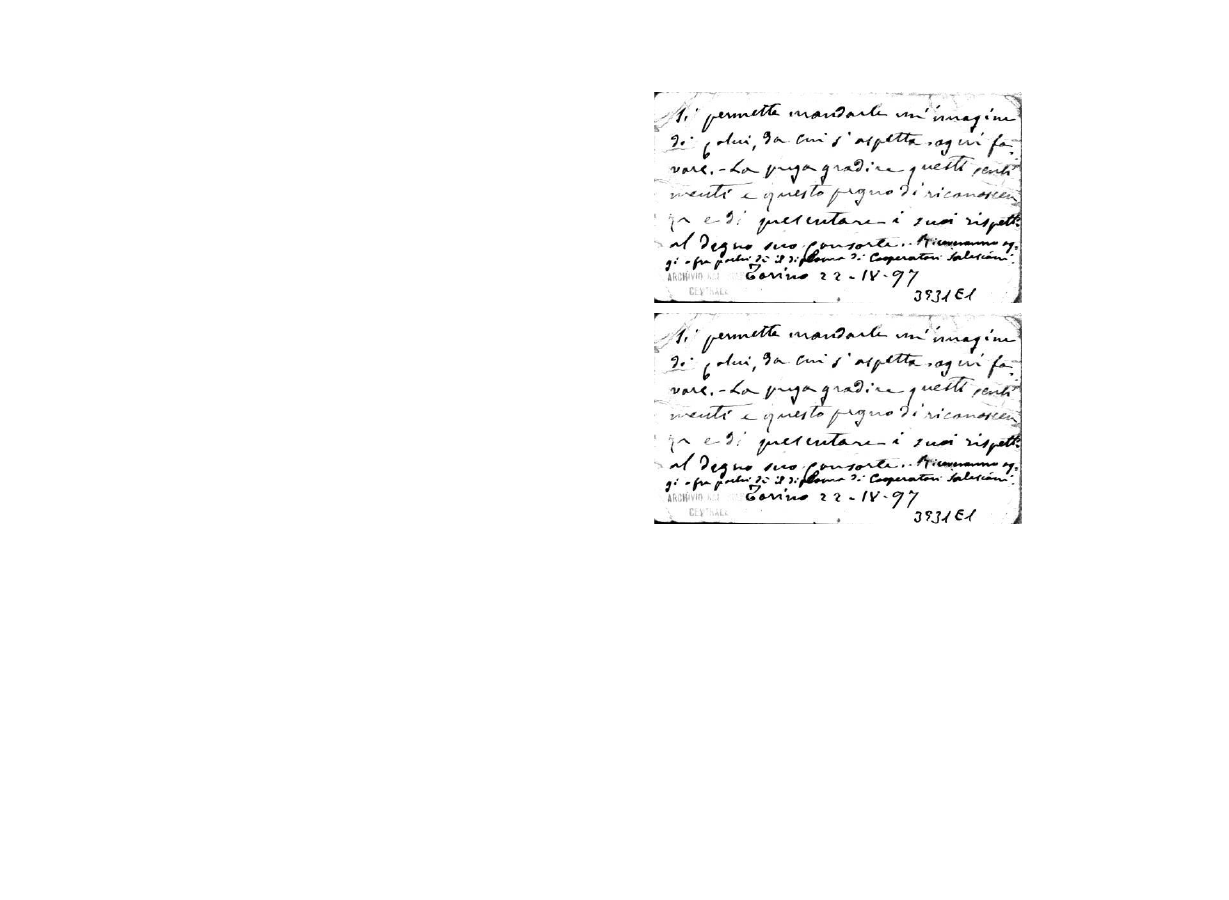 Si permette mandarle un'imagine
di colui, da cui s'aspetta ogni fa-
vore. - La prega gradire questi senti
menti e questo pegno di riconoscen
za e di presentare i suoi rispetti
al degno suo consorte.. Riceveranno og-
gi o fra pochi dì il diploma di Cooperatori Salesiani.
ARCHIVIO
Torino 22-IV-97
CENTRALE
3931E1
Si permette mandarle un'imagine
di colui, da cui s'aspetta ogni fa-
vore. - La prega gradire questi senti
menti e questo pegno di riconoscen
za e di presentare i suoi rispetti
al degno suo consorte.. Riceveranno og-
gi o fra pochi dì il diploma di Cooperatori Salesiani.
ARCHIVIO
Torino 22-IV-97
CENTRALE
3931E1